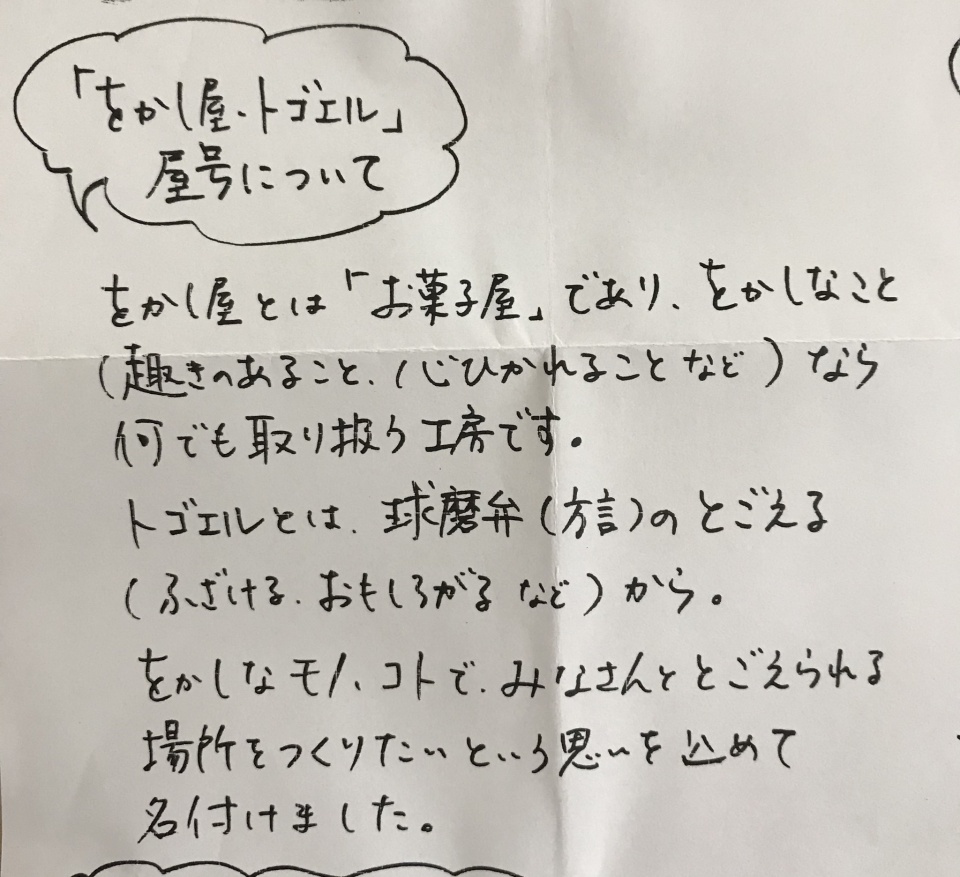 「をかし屋・トゴエル」
屋号について
をかし屋とは「お菓子屋」であり、をかしなこと
(趣きのあること、心ひかれることなど)なら
何でも取り扱う工房です。
トゴエルとは、球磨弁(方言)のとごえる
(ふざける、おもしろがるなど)から。
をかしなモノ、コトで、みなさんととごえられる
場所をつくりたいという思いを込めて
名付けました。